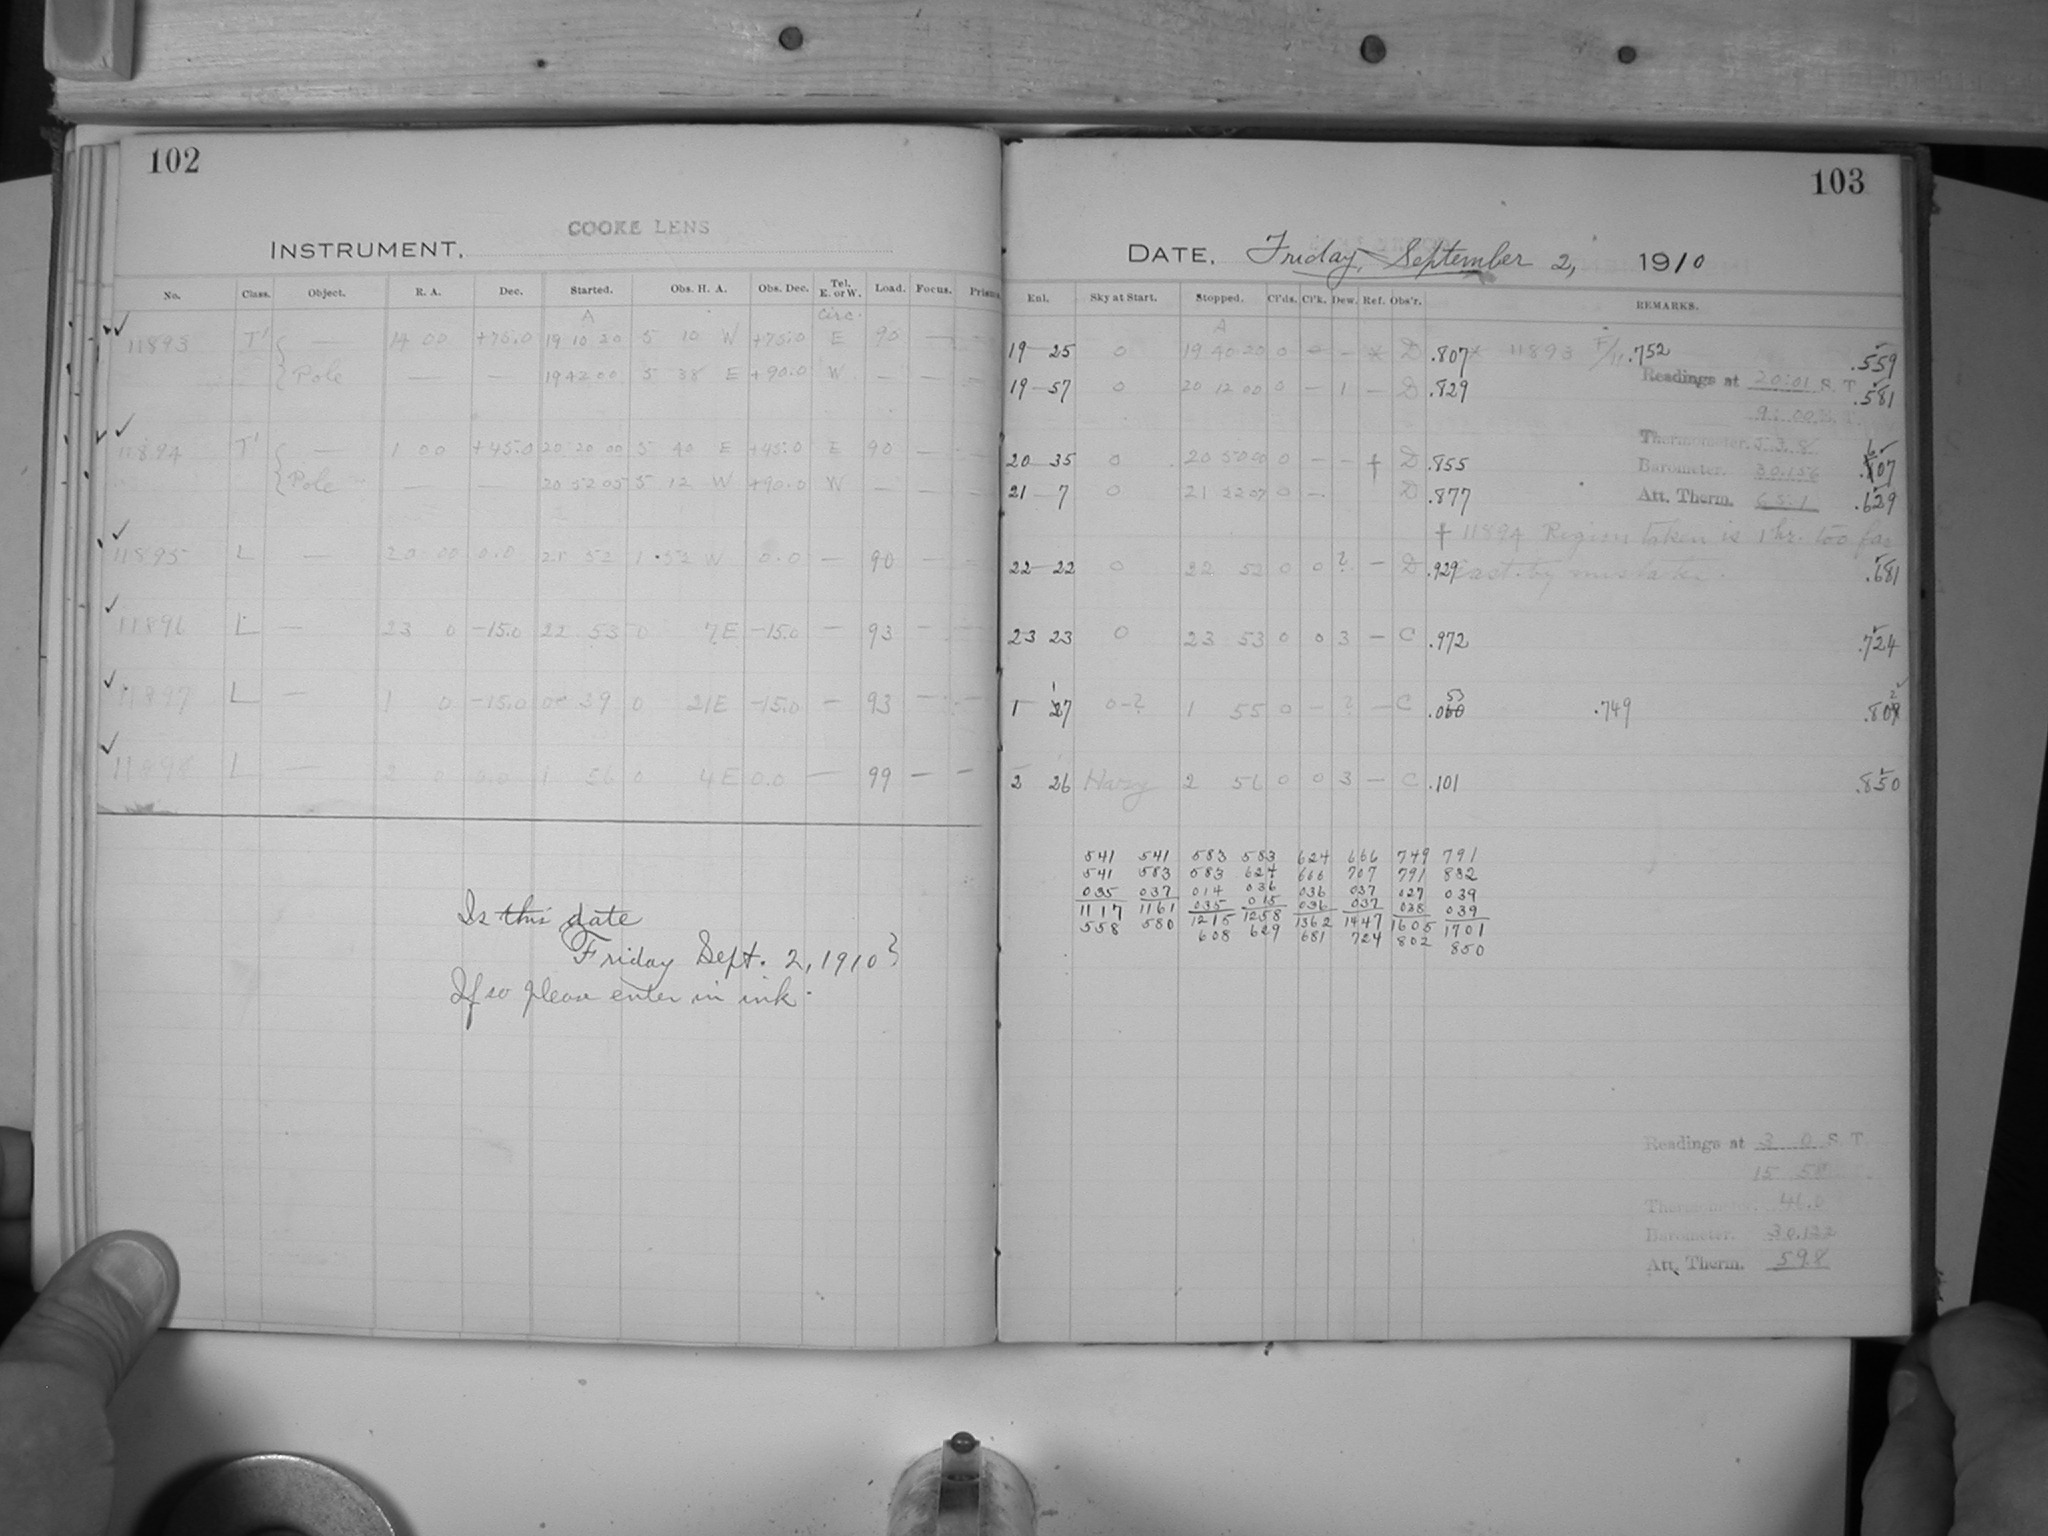 102
COOKE LENS
INSTRUMENT.
No. Class. Object. R. A. Dec. Started. Obs. H. A. Obs. Dec. Tel. E. or W. Load. Focus. Prisms.
A Circ.
✓ 11893 T' { — 14 00 +75.0 19 10 20 5 10 W +75.0 E 90 — —
{ Pole — — 19 42 00 5 38 E +90.0 W — — —
✓ 11894 T' { — 1 00 +45.0 20 20 00 5 40 E +45.0 E 90 — —
{ Pole — — 20 52 05 5 12 W +90.0 W — — —
✓ 11895 L — 20 00 0.0 21 52 1 52 W 0.0 — 90 — —
✓ 11896 L — 23 0 -15.0 22 53 0 7 E -15.0 — 93 — —
✓ 11897 L — 1 0 -15.0 0 39 0 21 E -15.0 — 93 — —
✓ 11898 L — 2 0 0.0 1 56 0 4 E 0.0 — 99 — —
Is this date
Friday Sept. 2, 1910}
If so please enter in ink.
103
DATE. Friday, September 2, 1910
Exl. Sky at Start. Stopped. Cl'ds. Cl'k. Dew. Ref. Obs'r. REMARKS.
A
19 25 0 19 40 20 0 — — * D .807 * 11893 F/11 .752 .559
Readings at 20:01 S. T.
19 57 0 20 12 00 0 — 1 — D .829 .581
9: 00
Thermometer. 53.8
20 35 0 20 50 00 0 — — † D .855 .607
Barometer. 30.156
21 7 0 21 22 07 0 — D .877 .629
Att. Therm. 65.1
† 11894 Region taken is 1 hr. too far
22 22 0 22 52 0 0 ? — D .929 east by mistake. .681
23 23 0 23 53 0 0 3 — C .972 .724
1 17 0-? 1 55 0 — ? — C .053 .749 .802
2 26 Hazy 2 56 0 0 3 — C .101 .850
541 541 583 583 624 666 749 791
541 583 583 624 666 707 791 832
035 037 014 036 036 037 027 039
1117 1161 035 015 036 037 038 039
558 580 1215 1258 1362 1447 1605 1701
608 629 681 724 802 850
Readings at 3 0 S. T.
15 58
Thermometer. 46.0
Barometer. 30.122
Att. Therm. 59.8